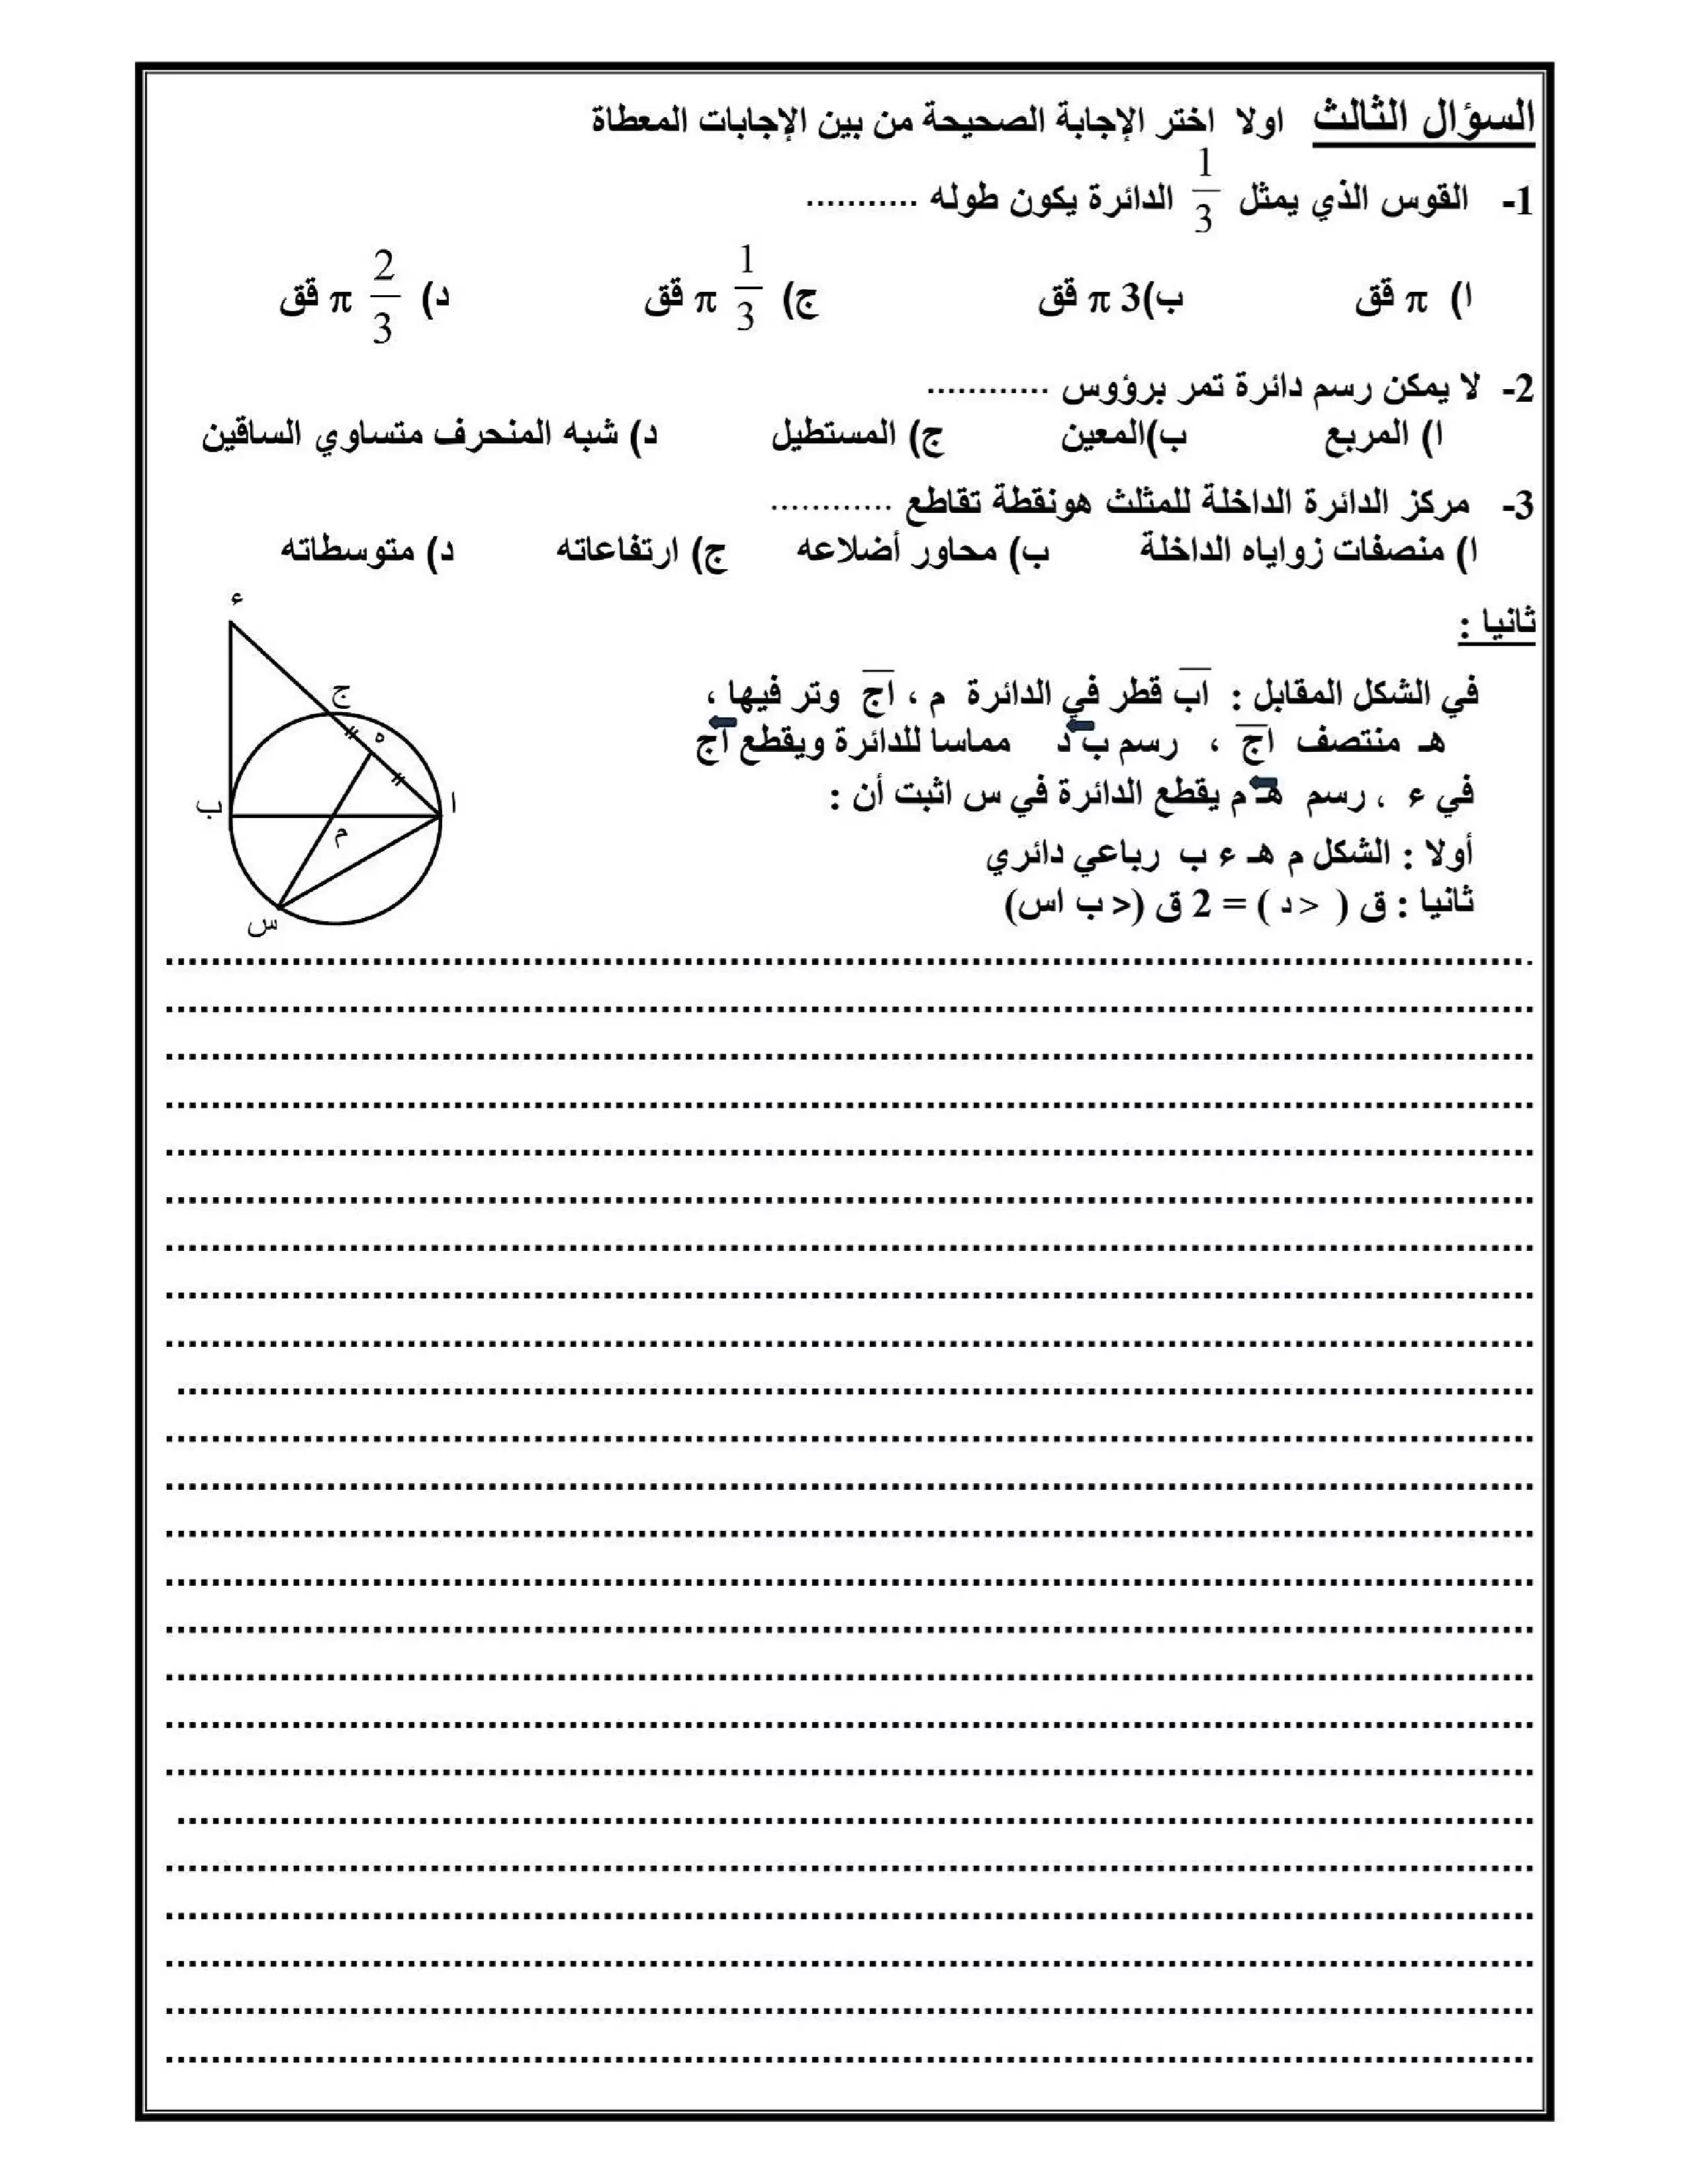 السؤال الثالث اولا اختر الإجابة الصحيحة من بين الإجابات المعطاة
1- القوس الذي يمثل 1/3 الدائرة يكون طوله ...........
ا) π قق ب)3 π قق ج) 1/3 π قق د) 2/3 π قق
2- لا يمكن رسم دائرة تمر برؤوس ............
ا) المربع ب)المعين ج) المستطيل د) شبه المنحرف متساوي الساقين
3- مركز الدائرة الداخلة للمثلث هونقطة تقاطع ............
ا) منصفات زواياه الداخلة ب) محاور أضلاعه ج) ارتفاعاته د) متوسطاته
ثانيا :
في الشكل المقابل : اب قطر في الدائرة م ، اج وتر فيها ،
هـ منتصف اج ، رسم ب د مماسا للدائرة ويقطع اج
في ء ، رسم هـ م يقطع الدائرة في س اثبت أن :
أولا : الشكل م هـ ء ب رباعي دائري
ثانيا : ق ( > د ) = 2 ق (> ب اس)
ء
ج
ه
ا
ب
م
س